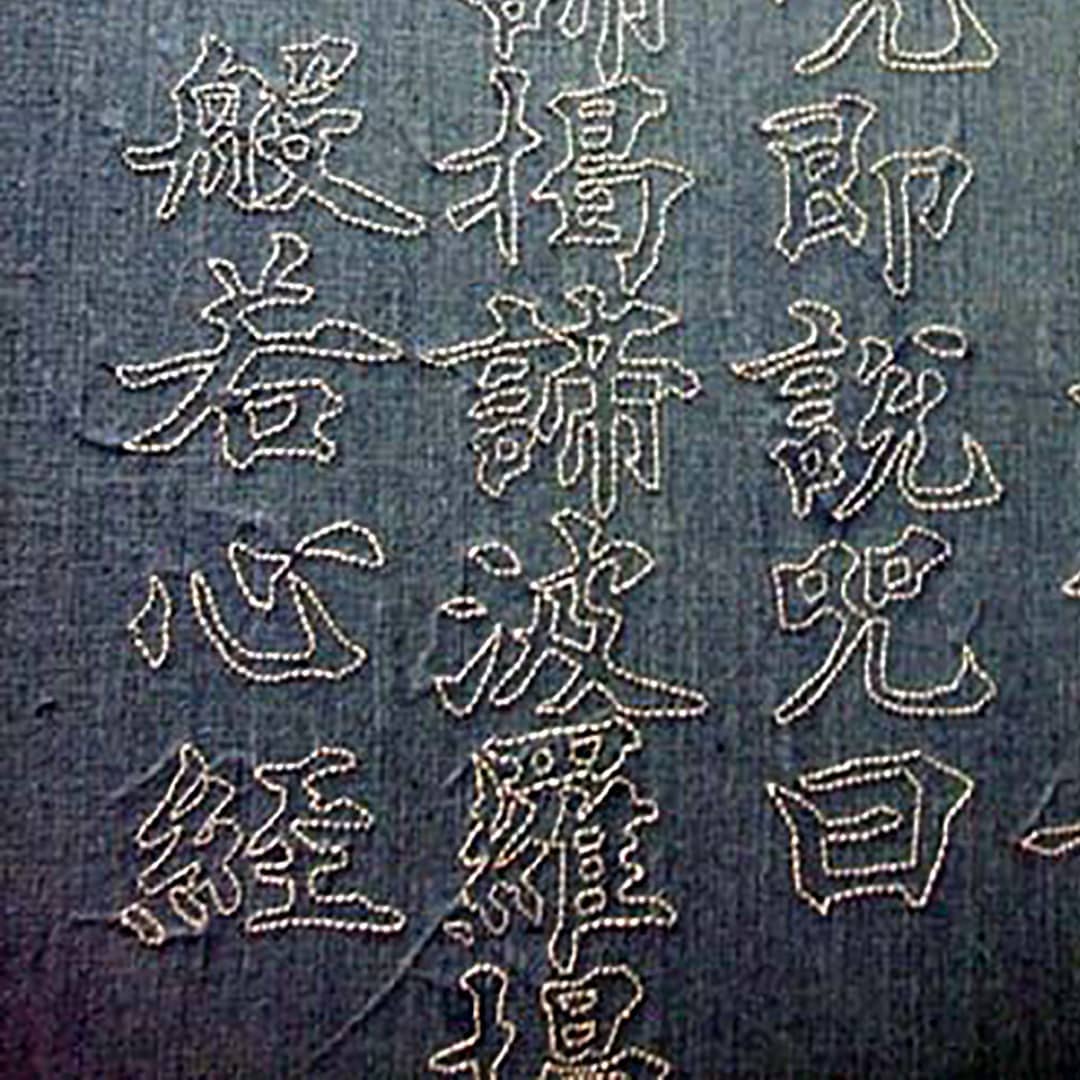 呪即說呪曰
諦揭諦波羅揭
般若心經